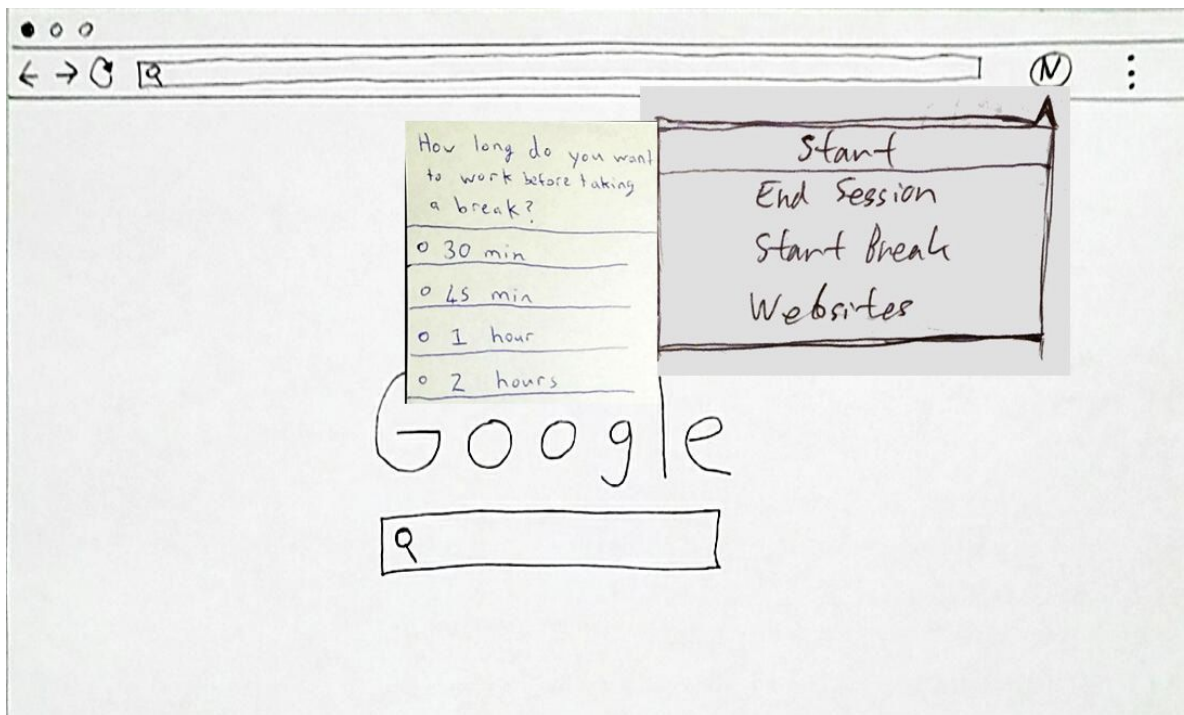 N
How long do you want
to work before taking
a break?
30 min
45 min
1 hour
2 hours
Start
End Session
Start Break
Websites
Google